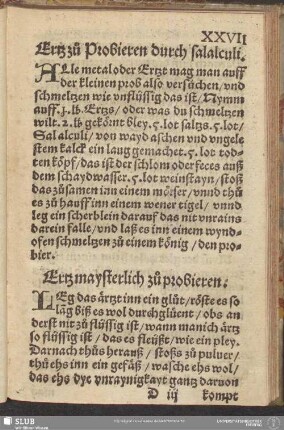 XXVII
Ertz zů Probieren durch salalculi.
ALle metal oder Ertzt mag man auff
der kleinen prob also versůchen/ vnd
schmeltzen wie vnflüssig das ist/ Nymm
auff .j. lb. Ertzs/ oder was du schmeltzen
wilt. 2. lb gekönt bley. 5. lot saltzs. 5. lot/
Sal alculi/ von wayd aschen vnd vngele
stem kalck ein laug gemachet. 5. lot tod-
ten kopf/ das ist der schlom oder feces auß
dem schaydwasser. 5. lot weinstayn/ stoß
das zůsamen inn einem mörser/ vnnd thů
es zů hauff inn einem wener tigel/ vnnd
leg ein scherblein darauf das nit vnrains
darein falle/ vnd laß es inn einem wynd-
ofen schmeltzen zů einem könig/ den pro-
bier.
Ertz maysterlich zů probieren.
LEg das ärtzt inn ein glüt/ röste es so
lag biß es wol durchglüent/ obs an
derst nit zů flüssig ist/ wann manich ärtz
so flüssig ist/ das es fleüßt/ wie ein pley.
Darnach thůs herauß/ stoß zů puluer/
thů ehs inn ein gefäß/ wasche ehs wol/
das ehs dye vnraynigkayt gantz daruon
D iij kompt
SLUB